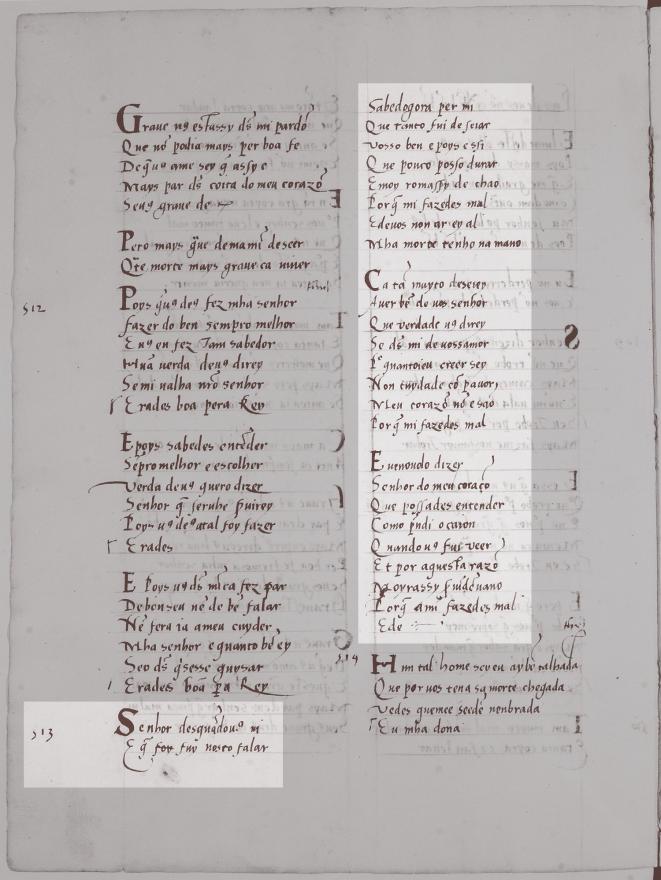 Graue uꝯ estassy ds̃ mi pardõ
Que nõ podia mays per boa fe
De q̃ uꝯ ame sey q̃ assy e
Mays par ds̃ coita do meu corazõ
Senꝯ graue de
Pero mays q̃ue demami descer
Q̃te morte mays graue ca uiuer
512
Poys q̃uꝯ deꝯ fez mha senhor
fazer do ben sempro melhor
E uꝯ en fez Tam sabedor
Hũa uerda deuꝯ direy
Se mi ualha nrõ senhor
Erades boa pera Rey
E poys sabedes entẽder
Sẽpro melhor e escolher
Verda deuꝯ quero dizer
Senhor q̃ seruhe
Poys uꝯ deꝯ atal foy fazer
Erades
E Poys uꝯ ds̃ nũca fez par
De ben seu nẽ de bẽ falar
Nẽ fera ia ameu cuyder
Mha senhor e quanto bẽ ey
Se o ds̃ q̃sesse guysar
Erades boa pa Rey
513
Senhor desquãdouꝯ ui
E q̃ foy fuy uosco falar
Sabedogora per mi
Que tanto fui de seiar
Vosso ben e poys e ssi
Que pouco posso durar
E moy romassy de chao
Por q̃ mi fazedes mal
E deuos non ar ey al
Mha morte tenho na mano
Ca tã muyto deseiey
Auer bẽ de uos senhor
Que uerdade uꝯ direy
Se ds̃ mi de uossamor
Pꝯ quantoieu creer sey
Non cuydade cõ pauor
Meu corazõ nõ e sao
Por q̃ mi fazedes mal
E uenoudo dizer
Senhor do meu coraçõ
Que possades entender
Como pndi o caion
Quando uꝯ fui ueer
Et por aquesta razõ
Moyrassy
Por q̃ ami fazedes mal
E de
514
Hun tal home sey eu ay bẽ talhada
Que por uos tena sa morte chegada
Vedes quemee seede nenbrada
Eu mha dona